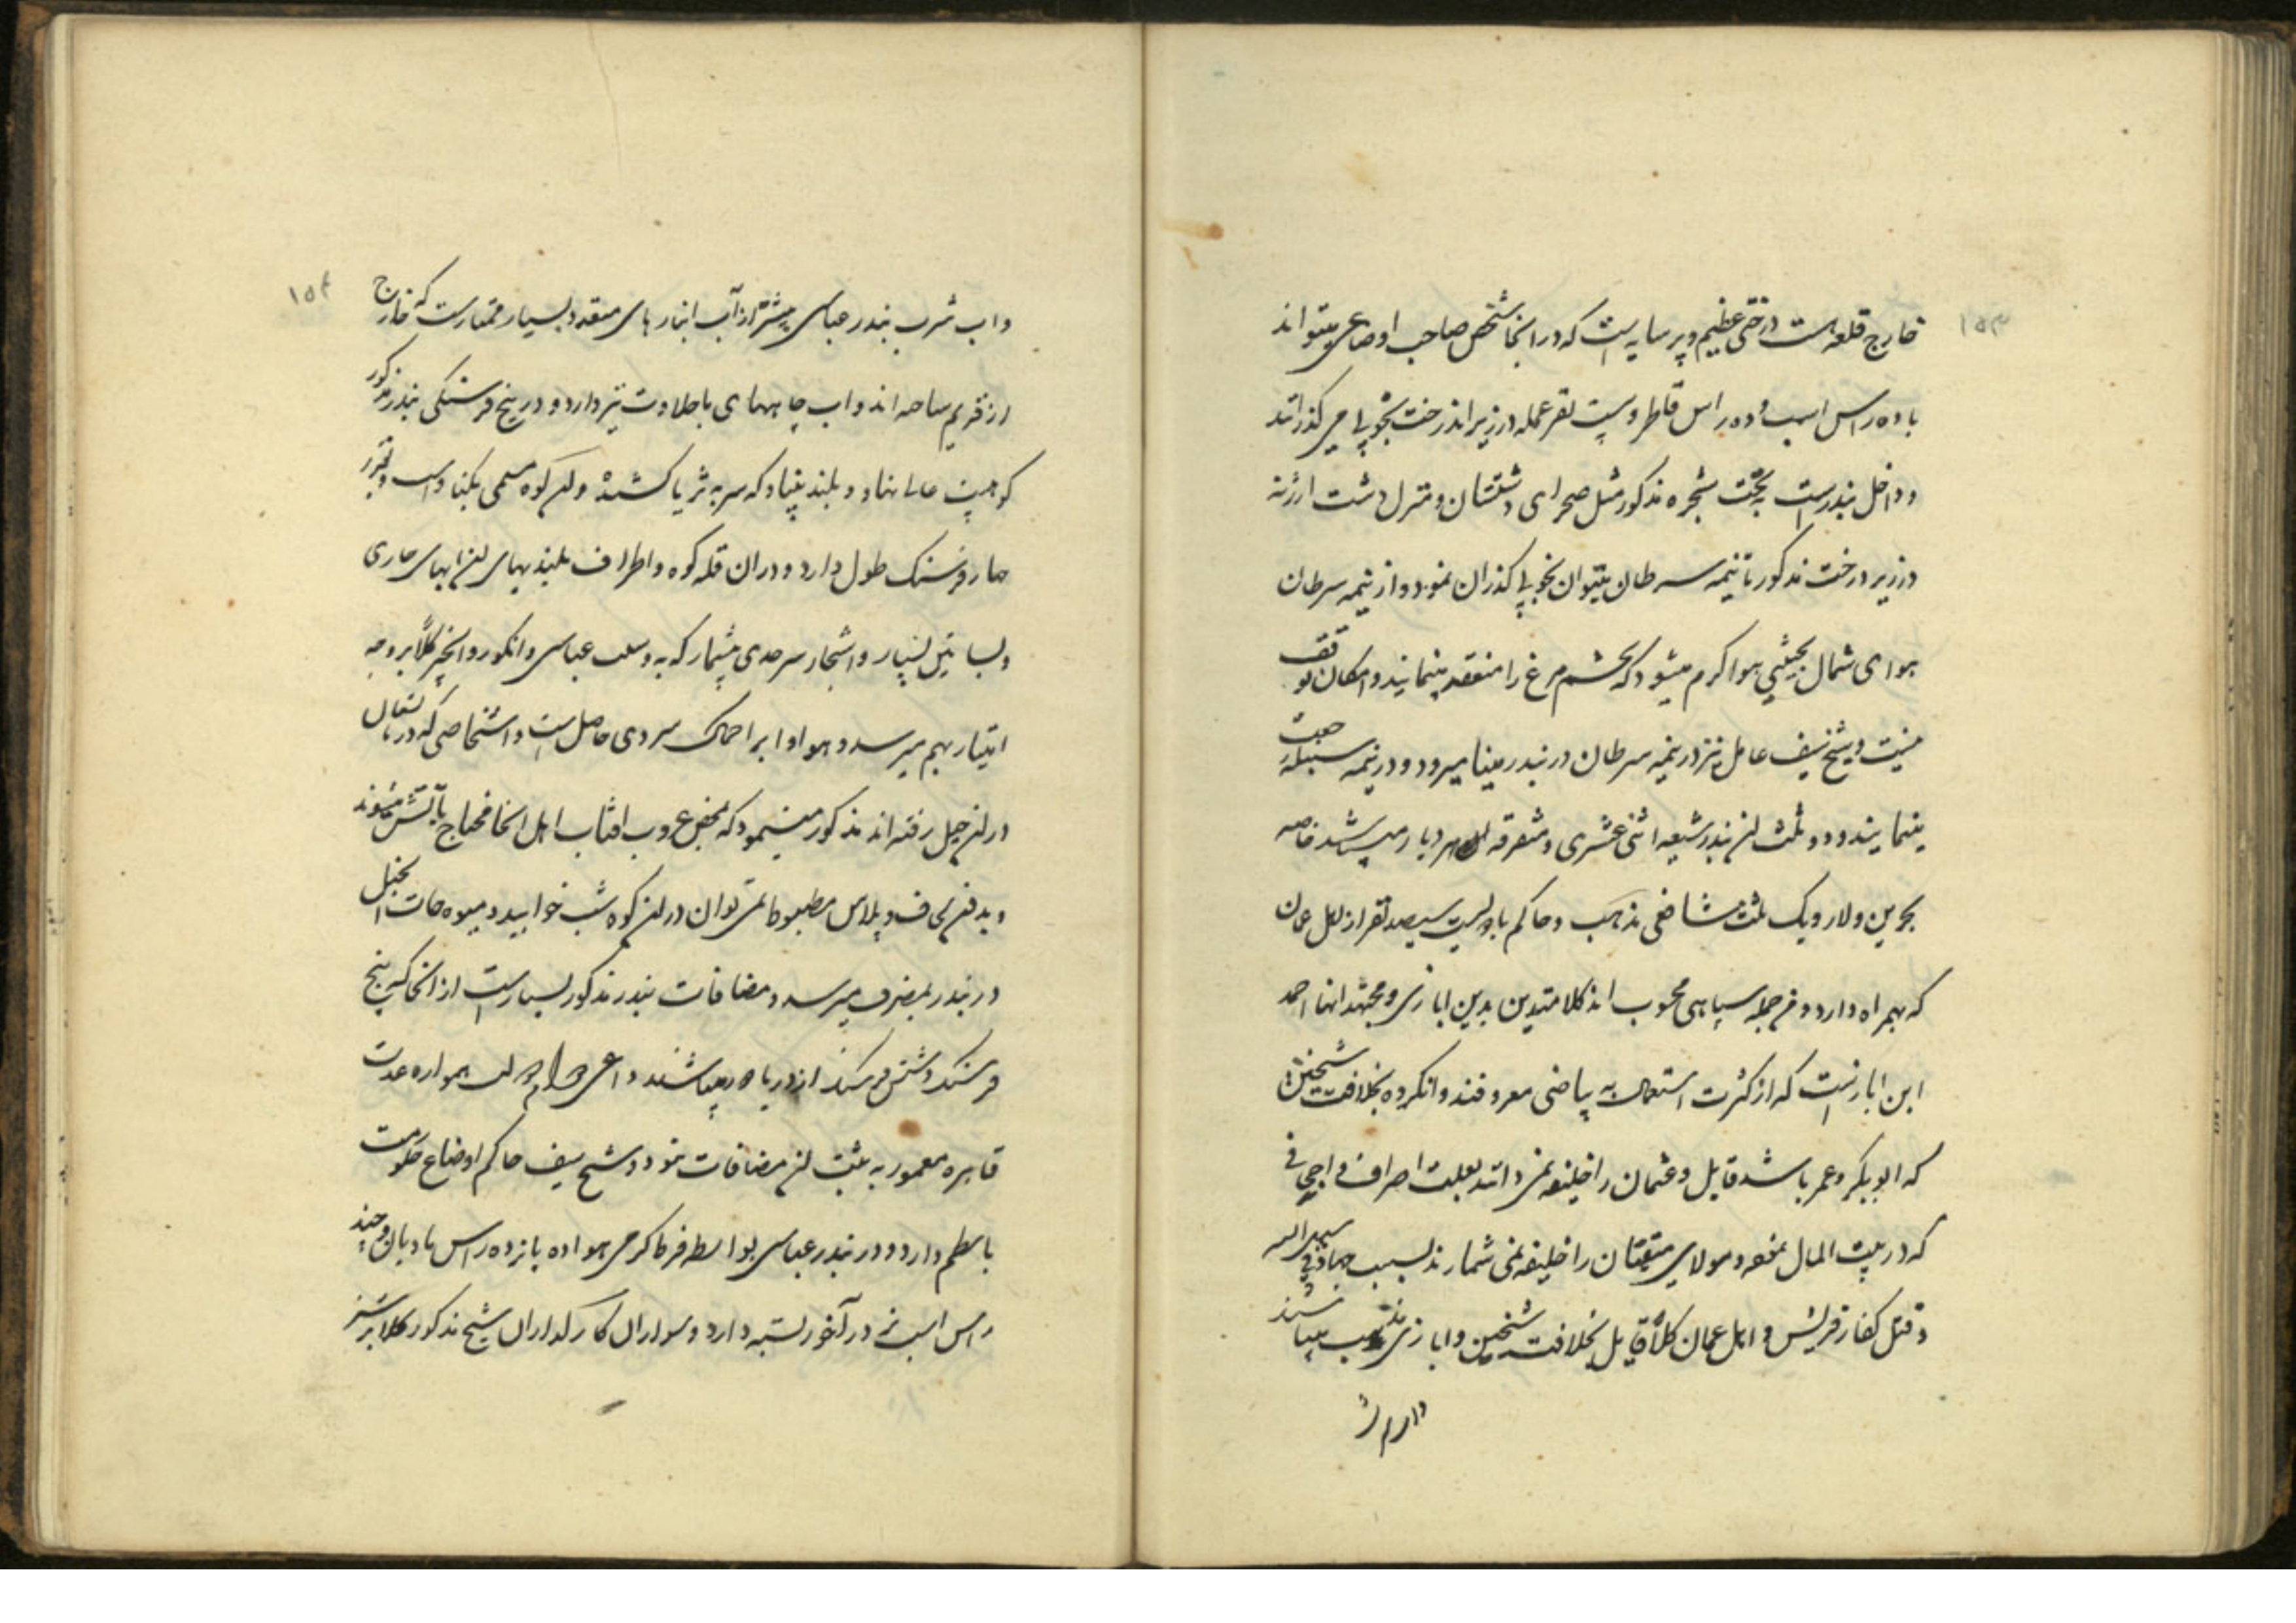 ۱۵۳
خارج قلعه است درختی عظیم و پر سایه است که در انجا شخص صاحب اوضاعی میتواند
با ده راس اسب و ده راس قاطر و بیست نفر عمله در زیر اندرخت بخوبی می گذراند
و داخل بندر است تحت شجره مذکور مثل صحرای دشتستان و منزل دشت ارژنه
در زیر درخت مذکور تا نیمه سرطان میتوان بخوبی گذران نمود و از نیمه سرطان
هوای شمال بحیثیتی هوا گرم میشود که تخم مرغ را منعقد مینماید و امکان توقف
نیست و شیخ سیف عامل نیز در نیمه سرطان در بندر مینا میرود و در نیمه سنبله
مینمایند و دو ثلث از بندر شیعه اثنی عشری و متفرقه هر دیار میباشد خاصه
بحرین و لار و یک ثلث شافعی مذهب و حاکم با دویست سیصد نفر از اهل عمان
که بهمراه دارد و جمله سپاهی محسوب اند کلا متدین بدین ابازی و مجتهد انها احمد
ابن اباز است که از کثرت استعمال به بیاضی معروفند و انکرده بخلافت شیخین
که ابوبکر و عمر باشد قایل و عثمان را خلیفه نمی دانند بعلت اصراف
که در بیت المال نمود و مولای متقیان را خلیفه نمی شمارند بسبب جهاد فی سبیل الله
و قتل کفار قریش و اهل عمان کلاً قایل بخلافت شیخین و ابازی مذهب میباشند
۱۵۴
و اب شرب بندر عباسی بیشتر از آب انبار های متعدد بسیار ممتاز است که خارج
از قدیم ساخته اند و اب چاههای با حلاوت نیز دارد و در پنج فرسنگی بندر مذکور
کوهیست عالی نهاد و بلند بنیاد که سر به ثریا کشیده و آن کوه مسمی بکناو است و بقدر
چهار فرسنگ طول دارد و در ان قله کوه و اطراف بلندیهای آن ابهای جاری
و بساتین بسیار و اشجار سرحدی بیشمار که به وسلب عباسی و انگور و انجیر کلاً بر وجه
امتیاز بهم میرسد و هوا و ابر احماک سردی حاصل است و اشخاصی که در تابستان
در آن جبل رفته اند مذکور مینمود که بمحض غروب افتاب اهل انجا محتاج بآتش میشوند
و بدون لحاف و پلاس مضبوط نمی توان در آن کوه شب خوابید و میوه جات انجبل
در بندر بمصرف میرسد و مضافات بندر مذکور بسیار است از انجا که پنج
فرسنگ و شش فرسنگ از دریا دور میباشند و همواره عدت
قاهره معمور به مثبت آن مضافات نمود و شیخ سیف حاکم اوضاع حکومت
با نظم دارد و در بندر عباسی بواسطه فرط گرمی هوا ده پانزده راس مادیان و چند
راس اسب نر در آخور بسته دارد و سواران کارگذاران شیخ مذکور کلا بر شتر